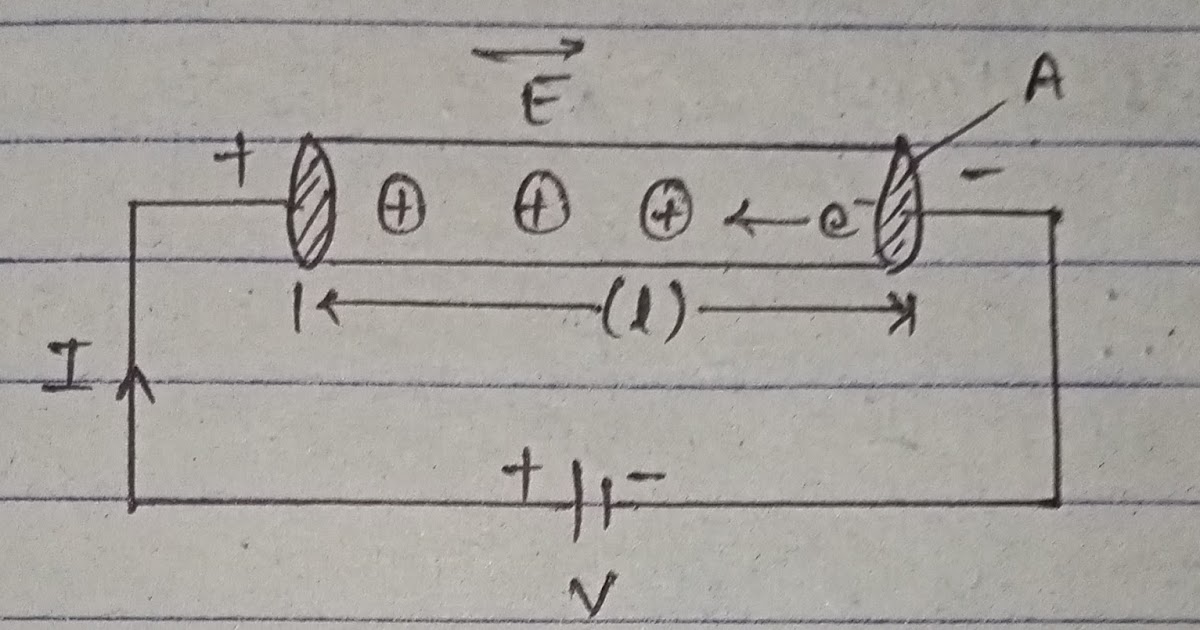 E
A
+ -
⊕ ⊕ ⊕ ← e⁻
(l)
I
+ -
V